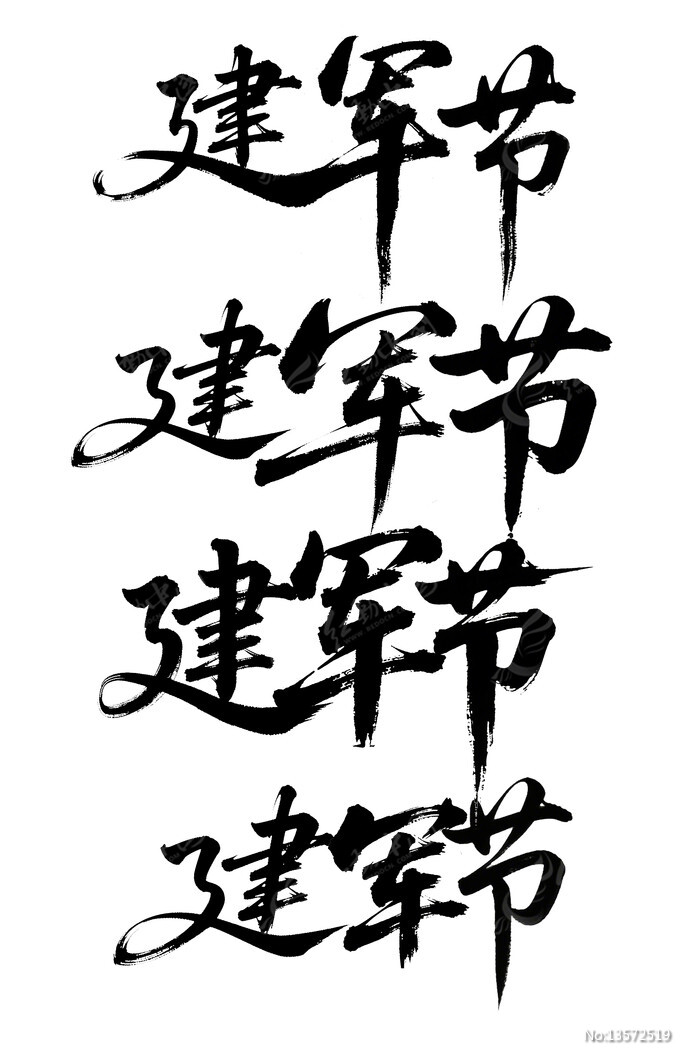 建军节
建军节
建军节
建军节
No:13572519